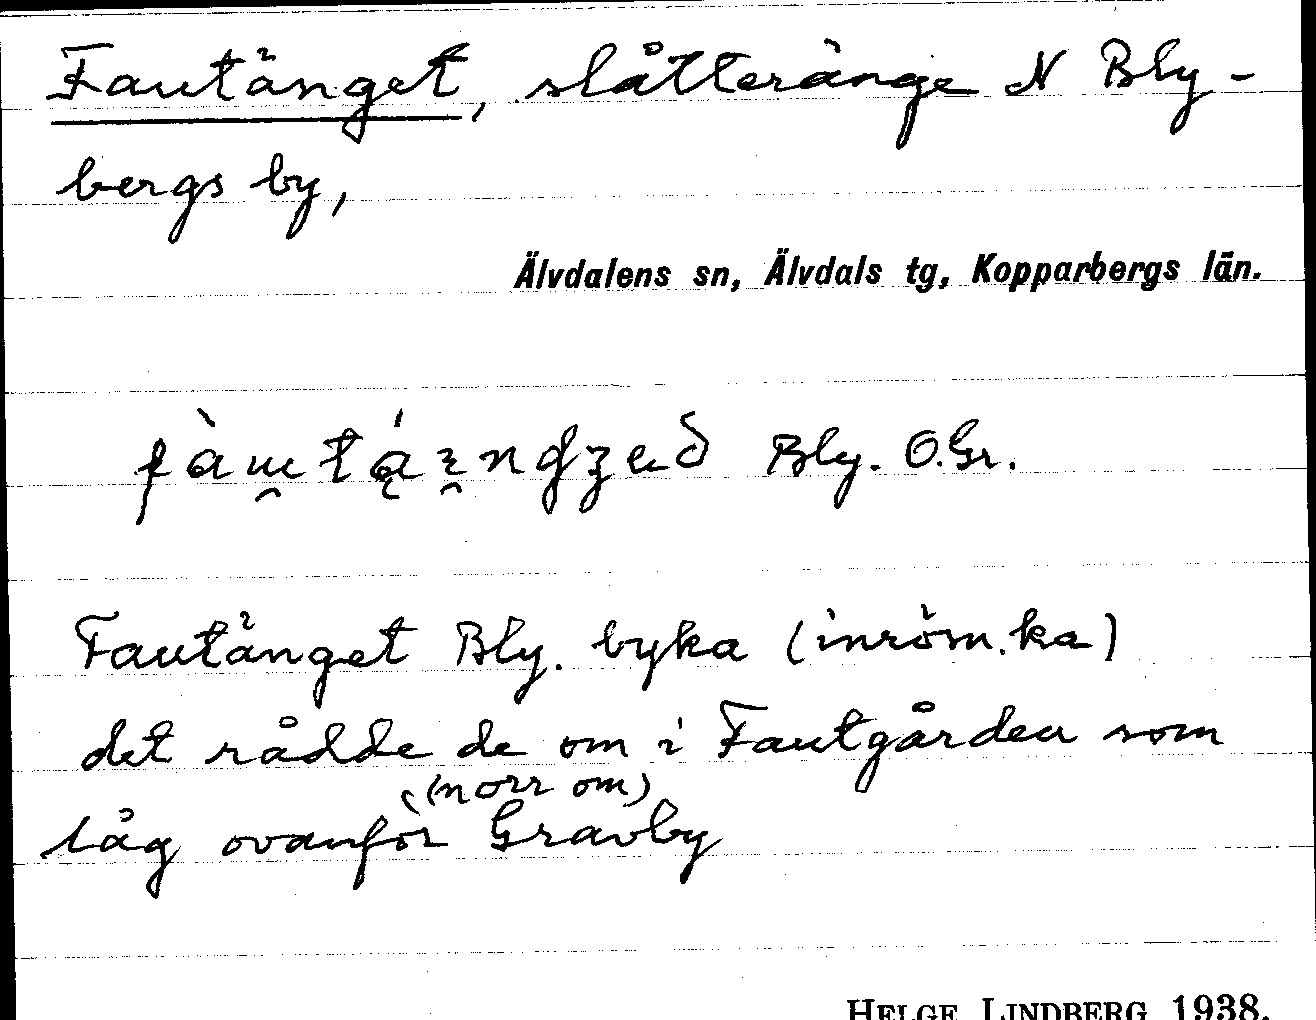 Fautänget, slåtteränge N Bly-
bergs by,
Älvdalens sn, Älvdals tg, Kopparbergs län.
Bly. O.Gr.
Fautänget Bly. byka (inröm.ka)
det rådde de om i Fautgården som
(norr om)
låg ovanför Gravby
HELGE LINDBERG 1938.